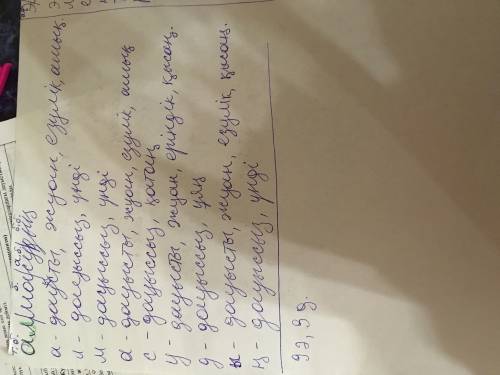 т.б. б. а.б. б.б.
алмасудың
а - дауысты, жуан, езулік, ашық
л - дауыссыз, үнді
м - дауыссыз, үнді
а - дауысты, жуан, езулік, ашық
с - дауыссыз, қатаң
у - дауысты, жуан, еріндік, қысаң.
д - дауыссыз, ұяң
ы - дауысты, жуан, езулік, қысаң.
ң - дауыссыз, үнді
9э, 9д.